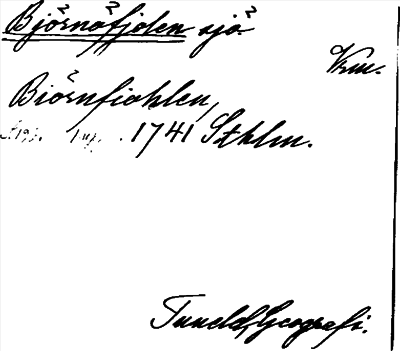 Björnöfjolen sjö
Vrm.
Biörnfiohlen,
1741 Sthlm.
Tuneld, Geografi.